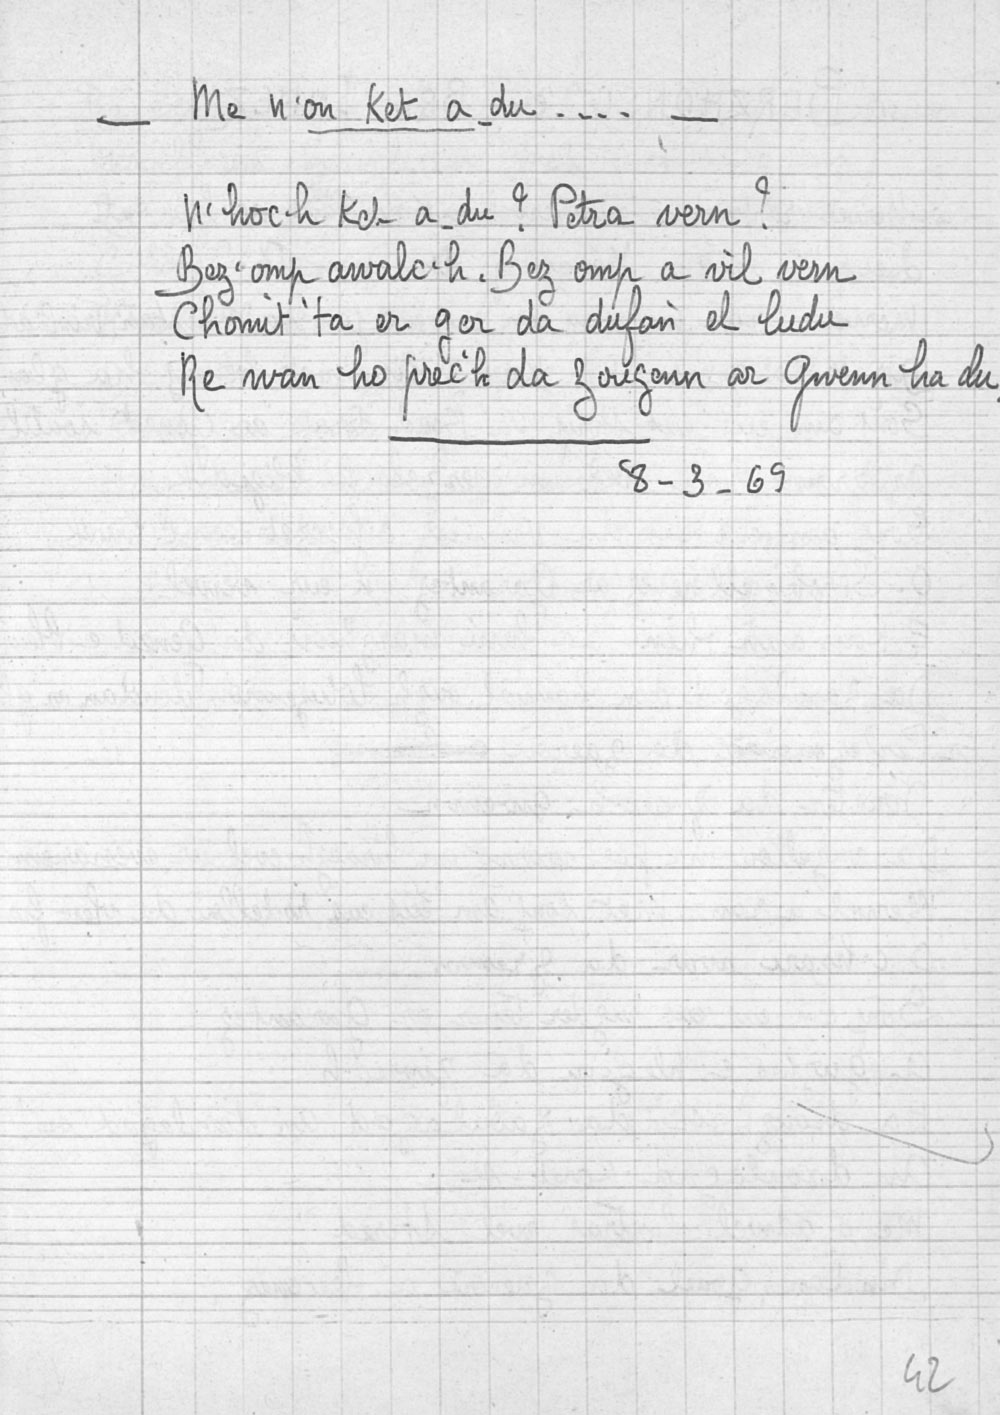 — Me n'on ket a-du .... —
N'hoc'h ket a-du ? Petra vern ?
Bez'omp awalc'h. Bez omp a vil vern
Chomit 'ta er ger da dufañ el ludu
Re wan ho prec'h da zougenn ar Gwenn ha du.
8-3-69
42